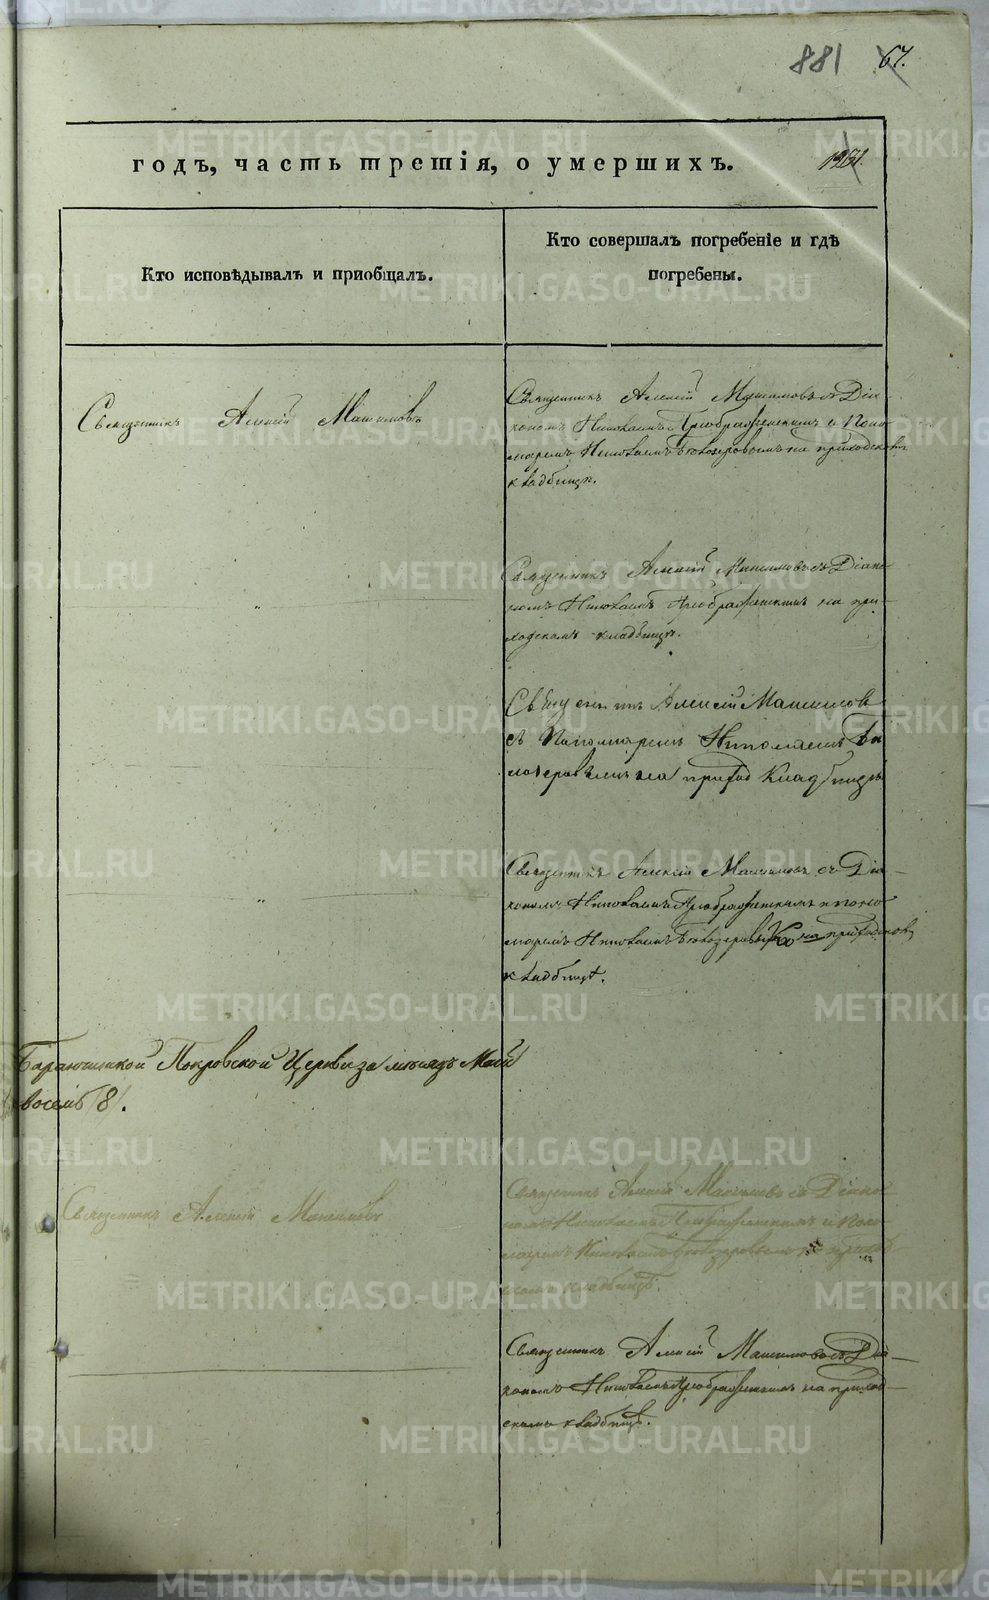 881 67.
годъ, часть третія, о умершихъ.
Кто исповѣдывалъ и приобщалъ.
Кто совершалъ погребеніе и гдѣ
погребены.
Священникъ Алексій
Священникъ Алексій
кономъ Николаемъ Преображенскимъ и Поно
маремъ Николаемъ на приходскомъ
кладбищѣ.
Священникъ Алексій съ Діако
номъ Николаемъ Преображенскимъ на при-
ходскомъ кладбищѣ.
Священникъ Алексій
съ Пономаремъ Николаемъ
на приход кладбищѣ
Священникъ Алексій съ Діа-
кономъ Николаемъ Преображенскимъ и поно
маремъ Николаемъ на приходском
кладбищѣ.
Баранчинской Покровской Церкви за мѣсяцъ Май
восемь /8/.
Священникъ Алексій
Священникъ Алексій съ Діако
номъ Николаемъ Преображенскимъ и Поно
маремъ Николаемъ на приход
скомъ кладбищѣ.
Священникъ Алексій съ Діа-
кономъ Николаемъ Преображенскимъ на приход-
скомъ кладбищѣ.
METRIKI.GASO-URAL.RU